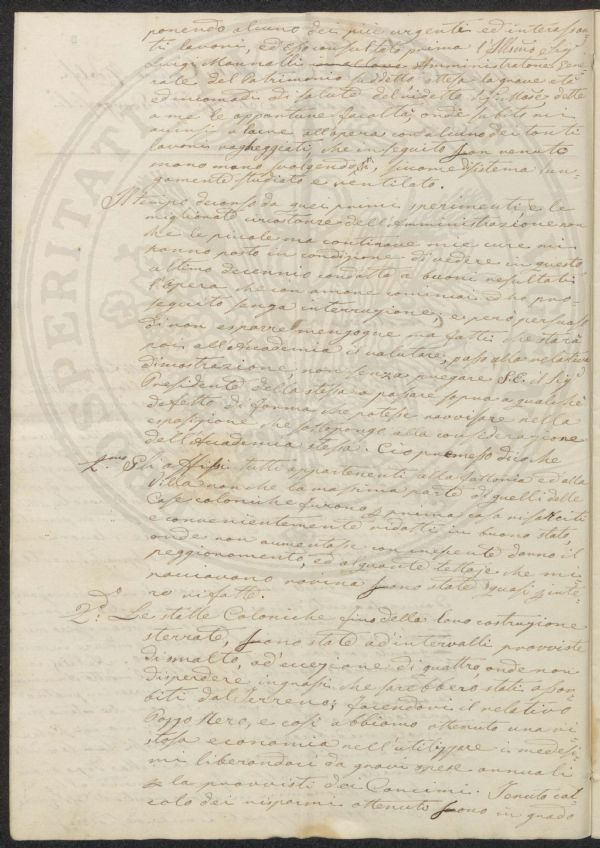 ponendo alcuno dei più urgenti ed interessan-
ti lavori, ed Esso consultato prima l'Illmo Sigr
Luigi Mannelli Amministratore Gene-
rale del Patrimonio suddetto attesa la grave età
ed incomodi di salute del
a me le opportune facoltà, onde subito mi
accinsi a dare all'opera con alcuno dei tanti
lavori vagheggiati, che in seguito son venuto
mano mano svolgendo, siccome sistema lun-
gamente studiato e ventilato.
Il tempo decorso da quei primi sperimenti e le
migliorate circostanze dell'Amministrazione non
che le piccole ma continove mie cure mi
hanno posto in condizione di vedere in questo
ultimo decennio condotta a buoni resultati
l'opera, che con amore cominciai ed ho pro-
seguito senza interruzione, e però persuaso
di non esporre menzogne ma fatti che starà
poi all'Accademia il valutare, passo alla relativa
dimostrazione, non senza pregare S.E. il Sigr
Presidente della stessa a passare sopra a qualsisia
difetto di forma che potesse ravvisare nella
esposizione che sottopongo alla considerazione
dell'Accademia stessa. Ciò premesso dico che
1.mo Gli affissi tutti appartenenti alla Fattoria ed alla
Villa non che la massima parte di quelli delle
Case coloniche furono p prima cosa risarciti
e convenientemente ridotti in buono stato,
onde non aumentasse con danno il
peggioramento, ed alquante Tettoje che mi-
nacciavano rovina sono state quasi p inte-
ro rifatte.
2.do Le stalle Coloniche fino della loro costruzione
sterrate, sono state ad intervalli provviste
di smalto, ad eccezione di quattro, onde non
disperdere ingrassi che sarebbero stati assor-
biti dal terreno; facendovi il relativo
Pozzo Nero, e così abbiamo ottenuto una vi-
stosa economia nell'utilizzare i medesi-
mi liberandoci da gravi spese annuali
p la provvista dei Concimi. Tenuto cal-
colo dei risparmi ottenuti sono in grado